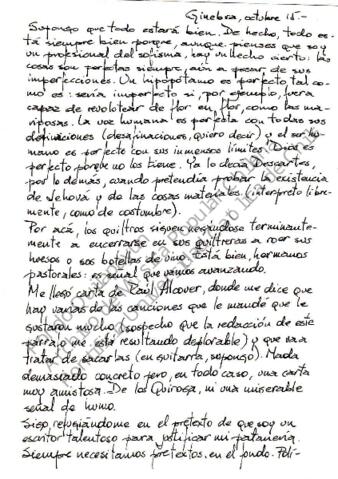 Ginebra, octubre 15.-
Supongo que todo estará bien. De hecho, todo es-
tá siempre bien porque, aunque pienses que soy
un profesional del sofisma, hay un hecho cierto: las
cosas son perfectas siempre, aún a pesar de sus
imperfecciones. Un hipopótamo es perfecto tal co-
mo es: sería imperfecto si, por ejemplo, fuera
capaz de revolotear de flor en flor, como las ma-
riposas. La voz humana es perfecta con todas sus
(desafinaciones, quiero decir) y el ser hu-
mano es perfecto con sus inmensos límites. Dios es
perfecto porque no los tiene. Ya lo decía Descartes,
por lo demás, cuando pretendía probar la existencia
de Jehová y de las cosas materiales (interpreto libre-
mente, como de costumbre).
Por acá, los quiltros siguen negándose terminante-
mente a encerrarse en sus quiltreras a roer sus
huesos o sus botellas de vino. Está bien, hermanos
pastorales: es señal que vamos avanzando.
Me llegó carta de Raúl Alcover, donde me dice que
hay varias de las canciones que le mandé que le
gustaron mucho (sospecho que la redacción de este
párrafo me está resultando deplorable) y que va a
tratar de sacarlas (en guitarra, supongo). Nada
demasiado concreto pero, en todo caso, una carta
muy amistosa. De los Quiroga, ni una miserable
señal de humo.
Sigo refugiándome en el pretexto de que soy un
escritor talentoso para justificar mi patanería.
Siempre necesitamos pretextos, en el fondo. Feli-